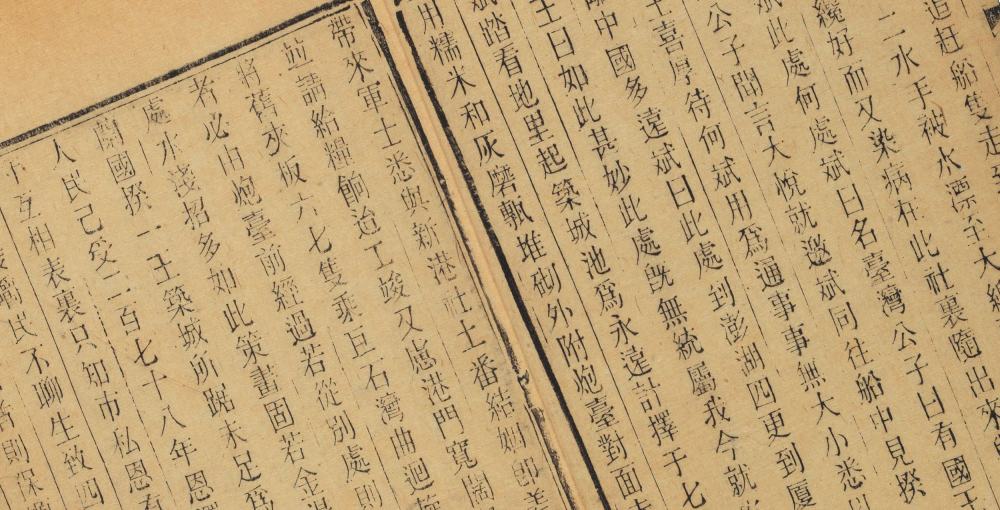 追赶船隻走
二水手被水漂至大
纔好而又染病在此社裏隨出來
此處何處斌曰名臺灣公子曰有國王
公子聞言大悅就邀斌同往船中見揆
王喜厚待何斌用爲通事事無大小悉以
中國多遠斌曰此處到澎湖四更到厦
王曰如此甚妙此處旣無統屬我今就
斌踏看地里起築城池爲永遠計擇于七
用糯米和灰磨甎堆砌外附炮臺對面
帶來軍士悉與新港社土番結姻卽
並請給糧餉迨工竣又慮港門寬闊
將舊夾板六七隻乘巨石灣曲迴
者必由炮臺前經過若從別處則
處水淺招多如此策畫固若金湯
國揆一王築城所踞未足爲
人民已受二百七十八年恩
互相表裏只知市私恩
民不聊生致四
則保